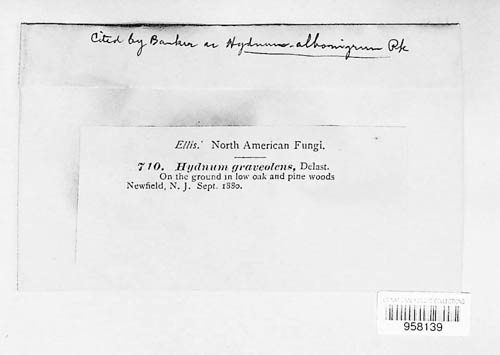 Cited by Banker as Hydnum albonigrum Pk
Ellis. North American Fungi.
710. Hydnum graveolens, Delast.
On the ground in low oak and pine woods
Newfield, N. J. Sept. 1880.
958139